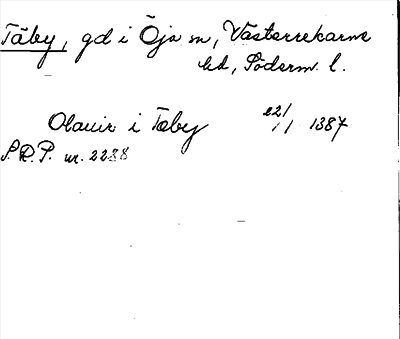 Täby, gd i Öja sn, Västerrekarne
hd, Söderm. l.
Olauir i Täby 22/1 1387
S.R.P. nr. 2288